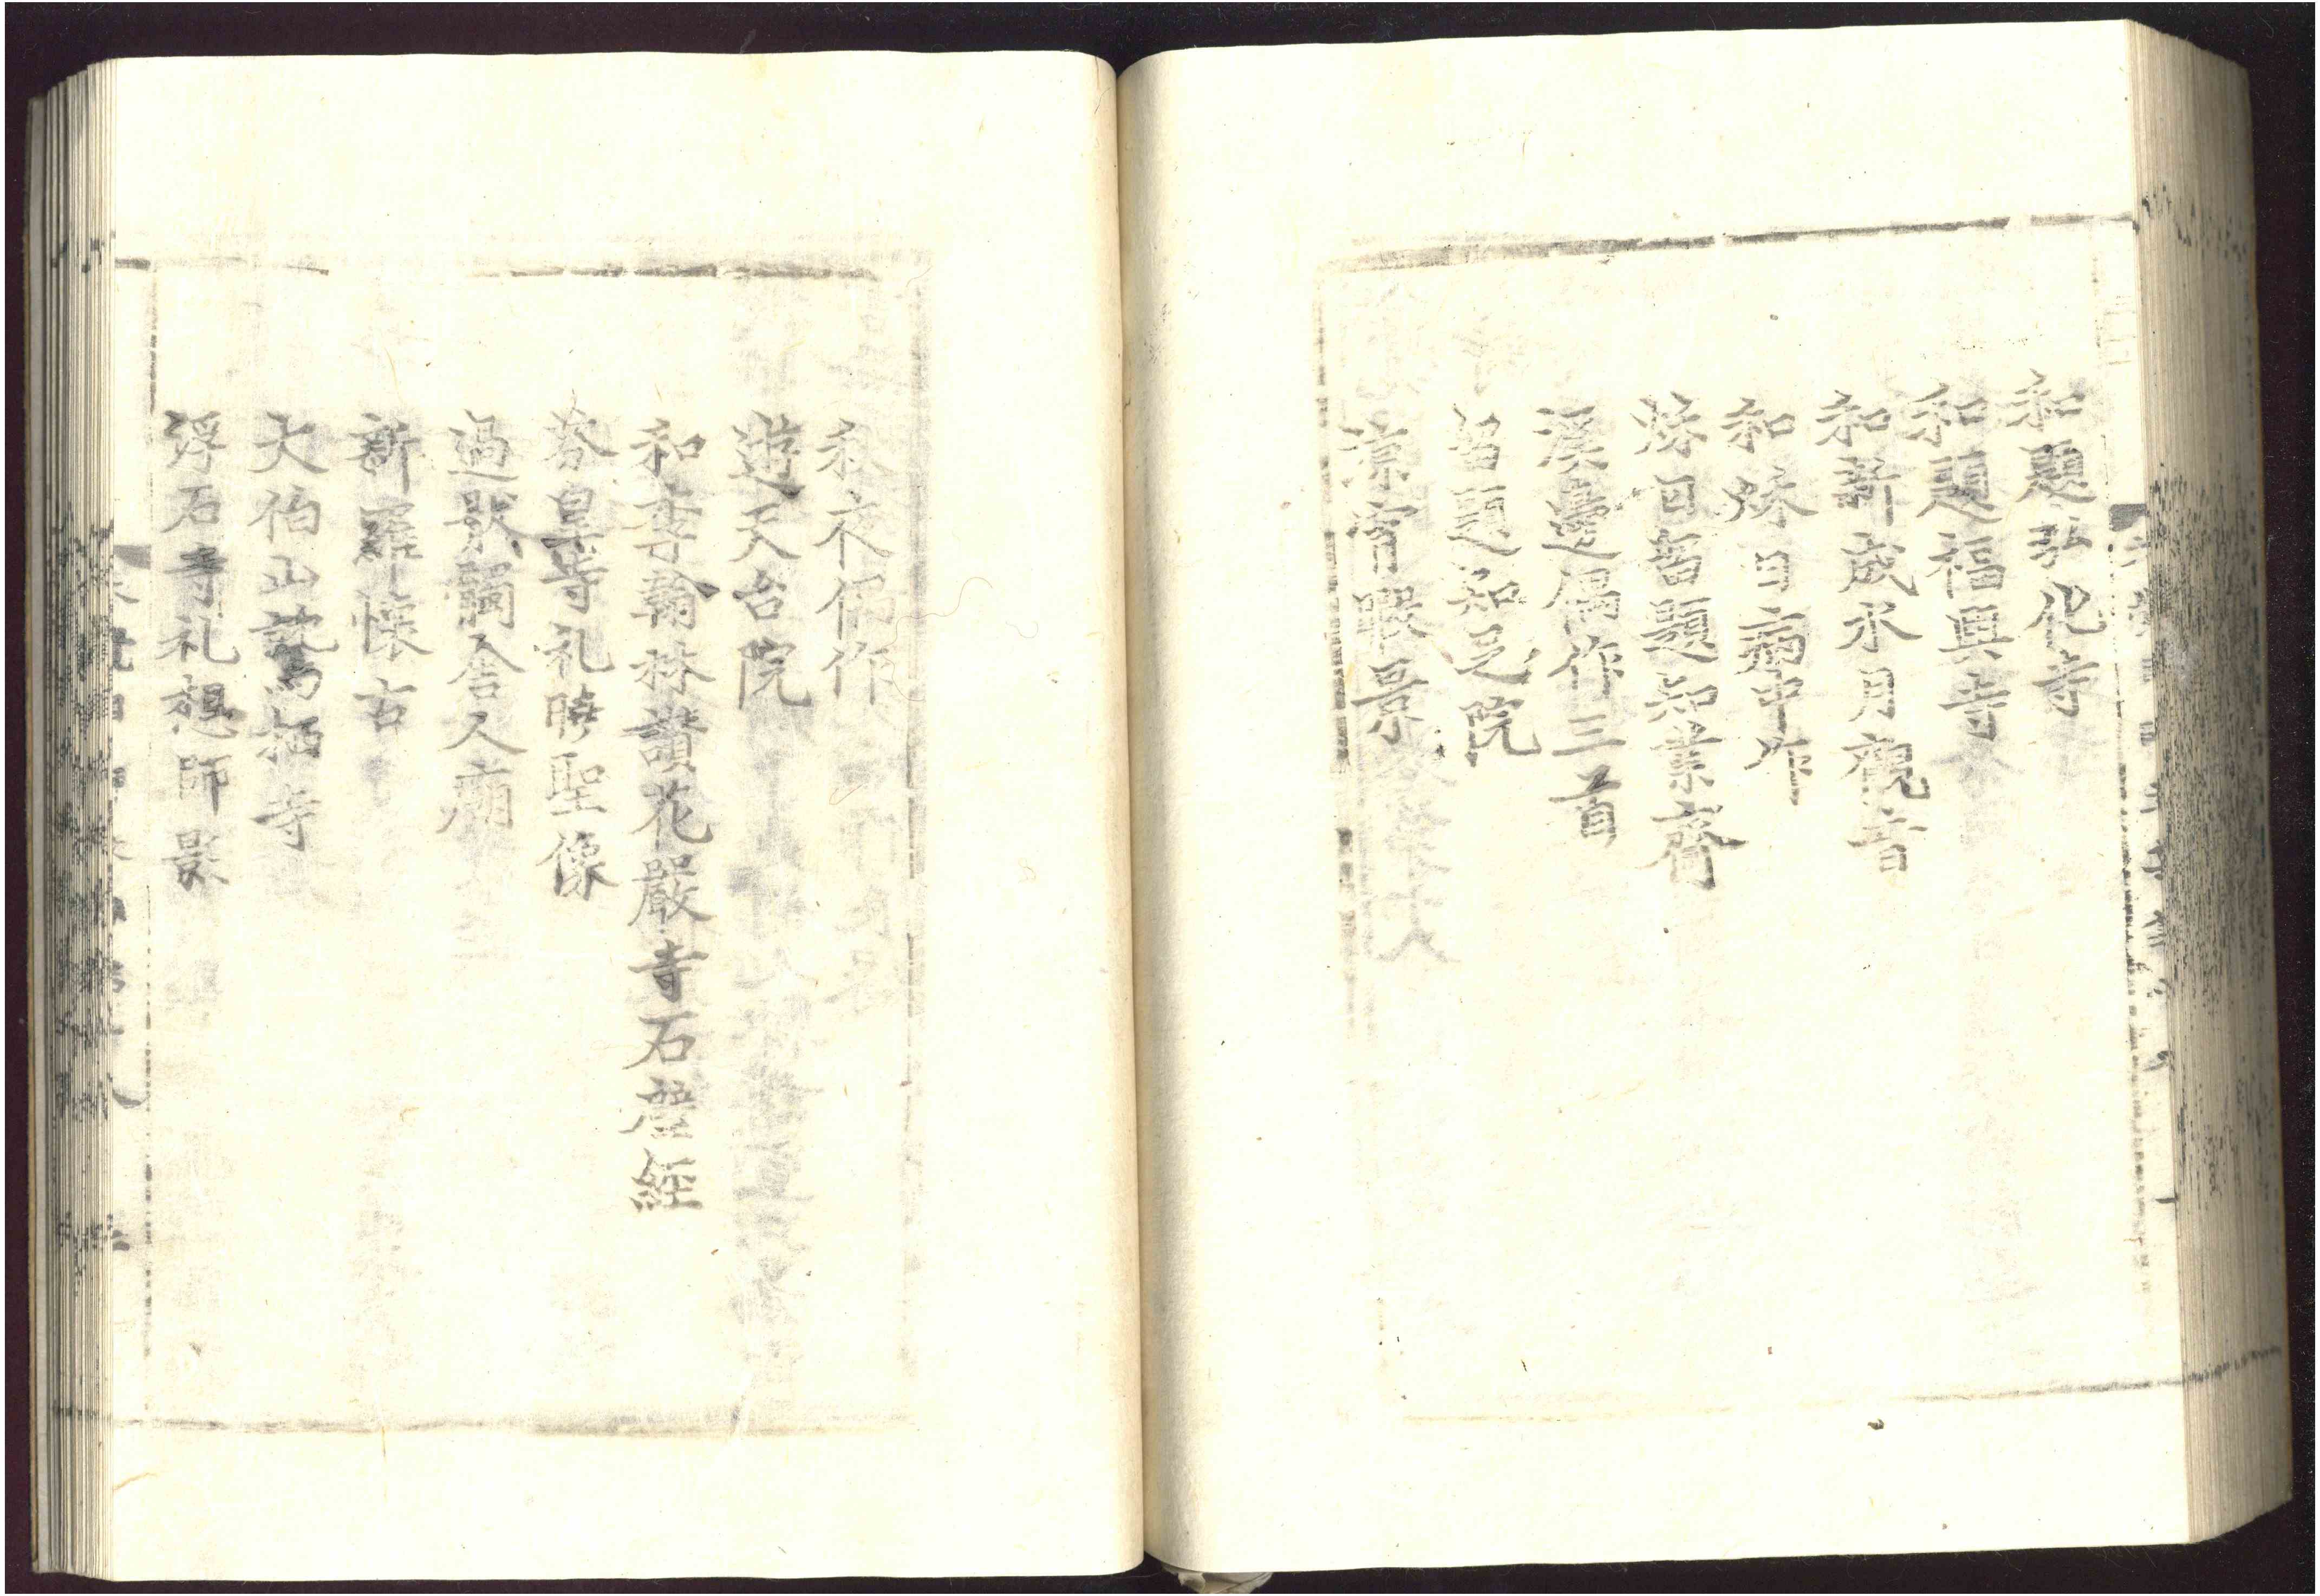 和題弘化寺
和題福興寺
和新成水月觀音
和秋日病中作
秋日留題知業齋
溪邊偶作三首
留題知足院
涼宵眼景
秋木偶作
遊天台院
和李翰林讚花嚴寺石壁經
芬皇寺礼曉聖像
過猒髑舍人廟
新羅懷古
大伯山鷲栖寺
浮石寺礼想師影